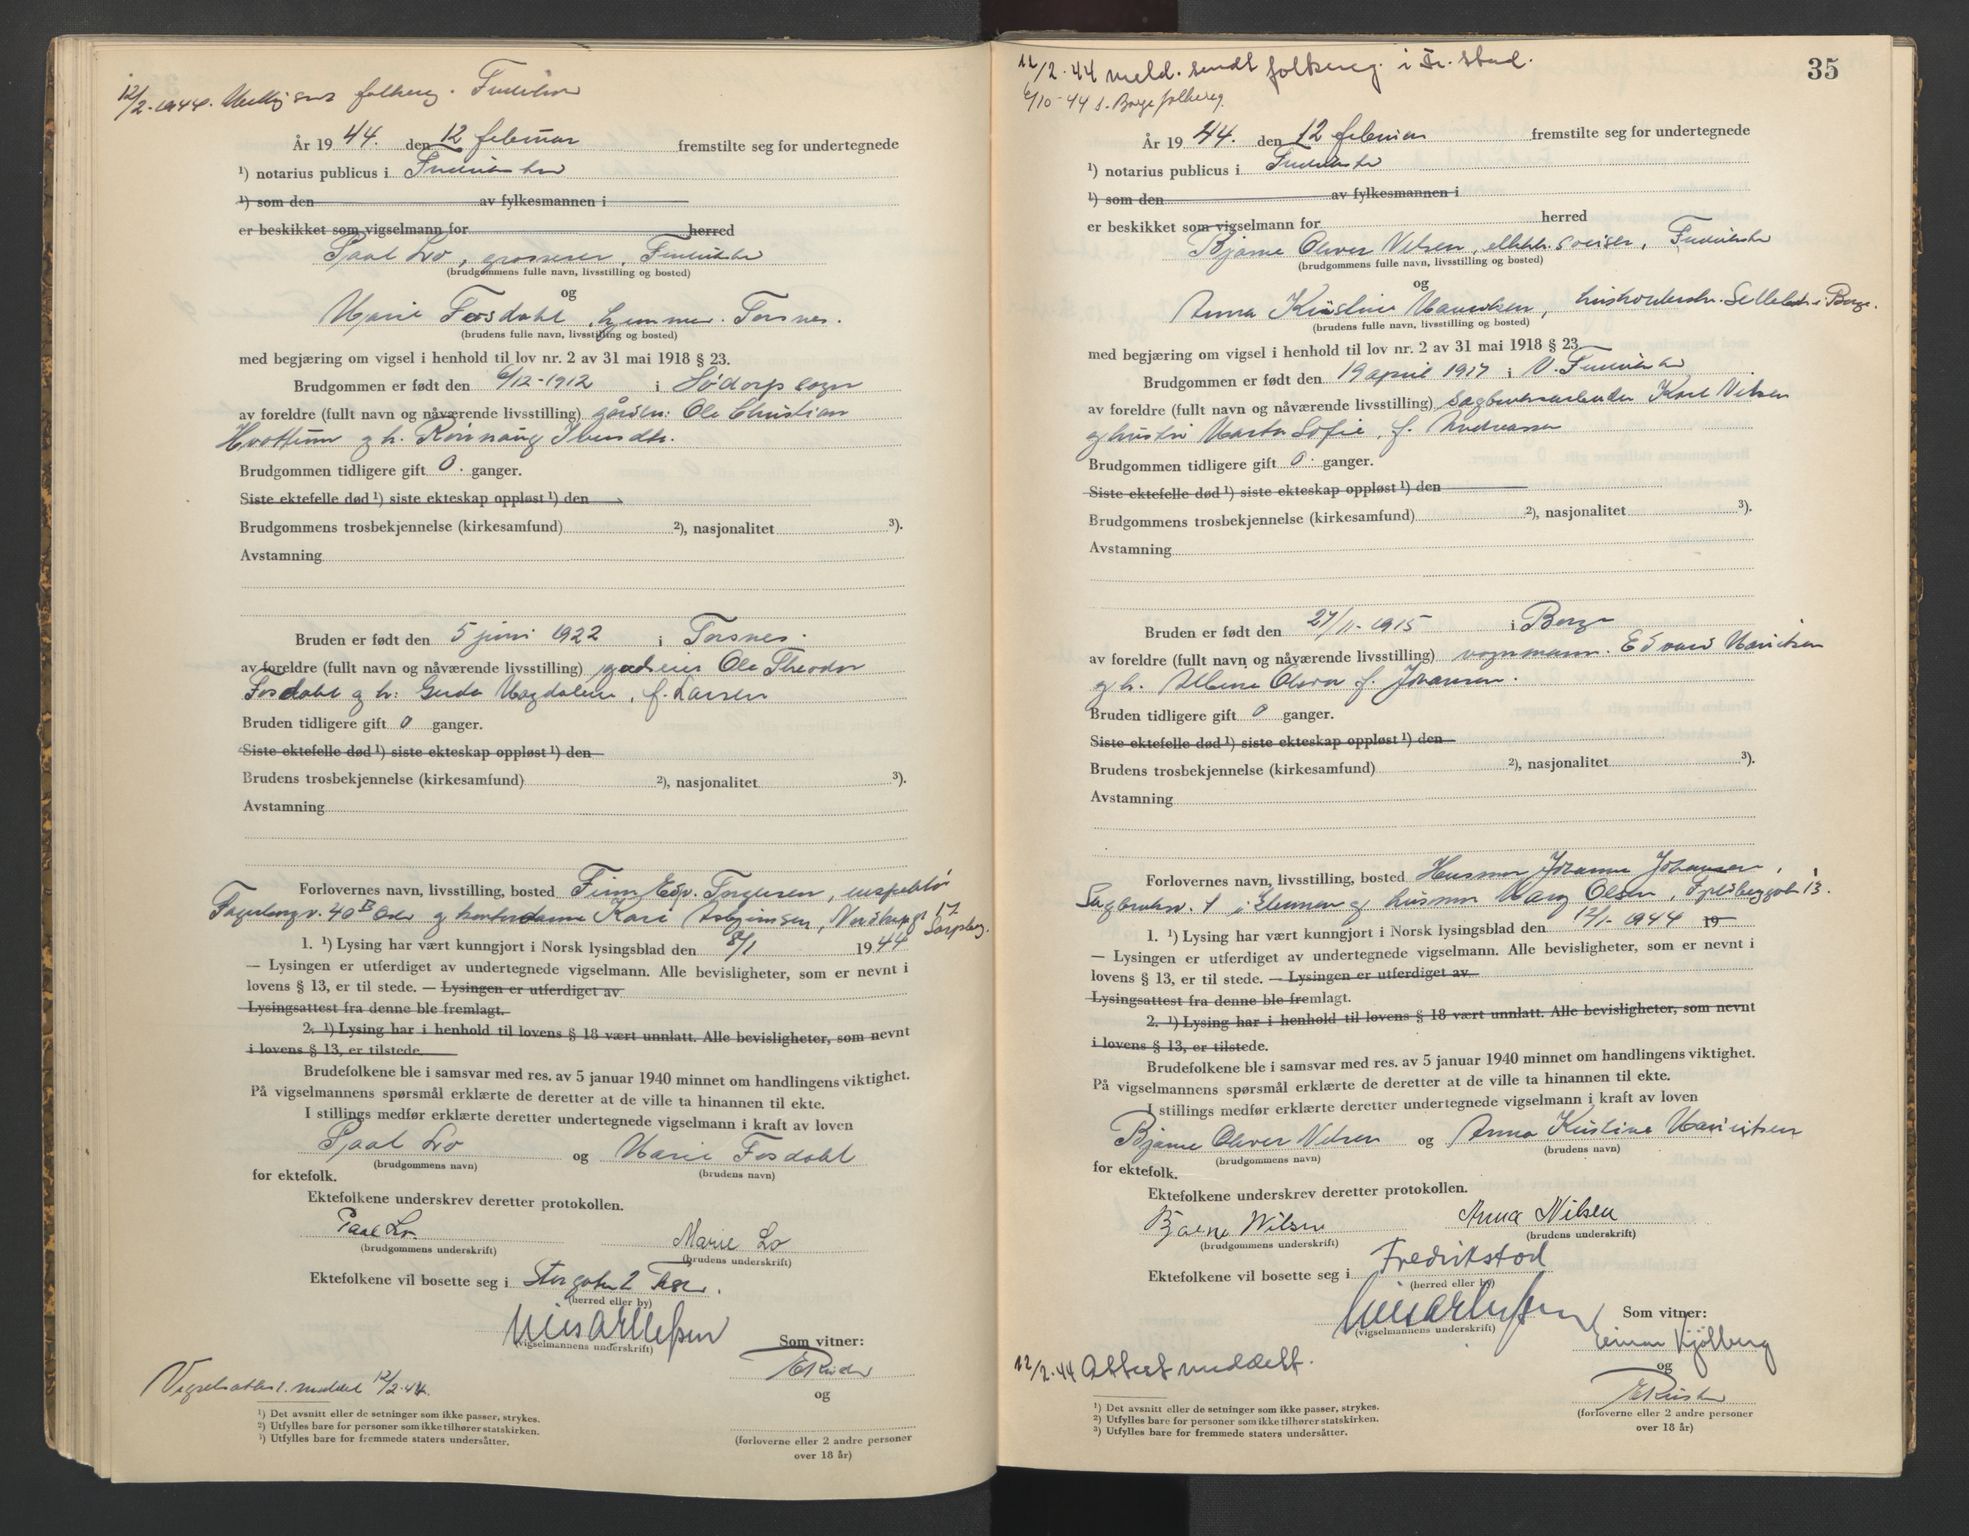 12/2-1944. folkereg.
År 1944. den 12 februar fremstilte seg for undertegnede
¹) notarius publicus i Fredrikstad
¹) som den av fylkesmannen i
er beskikket som vigselmann for herred
Paal Lo, grosserer, Fredrikstad
(brudgommens fulle navn, livsstilling og bosted)
og
Marie Fosdahl, hjemmev. Torsnes.
(brudens fulle navn, livsstilling og bosted)
med begjæring om vigsel i henhold til lov nr. 2 av 31 mai 1918 § 23.
Brudgommen er født den 6/12-1912 i Sødorp sogn
av foreldre (fullt navn og nåværende livsstilling) Ole Christian
g h.
Brudgommen tidligere gift 0. ganger.
Siste ektefelle død ¹) siste ekteskap oppløst ¹) den
Brudgommens trosbekjennelse (kirkesamfund) ²), nasjonalitet ³).
Avstamning
Bruden er født den 5 juni 1922 i Torsnes.
av foreldre (fullt navn og nåværende livsstilling) Ole Theodor
Fosdahl g h: Gerda Magdalene, f. Larsen
Bruden tidligere gift 0 ganger.
Siste ektefelle død ¹) siste ekteskap oppløst ¹) den
Brudens trosbekjennelse (kirkesamfund) ²), nasjonalitet ³).
Avstamning
Forlovernes navn, livsstilling, bosted Finn Esp. Torgersen, inspektør
Fagerborgv. 40 B Oslo g kontordame Kari 17 Sarpsbg.
1. ¹) Lysing har vært kunngjort i Norsk lysingsblad den 8/1 1944
— Lysingen er utferdiget av undertegnede vigselmann. Alle bevisligheter, som er nevnt i
lovens § 13, er til stede. — Lysingen er utferdiget av
Lysingsattest fra denne ble fremlagt.
2. ¹) Lysing har i henhold til lovens § 18 vært unnlatt. Alle bevisligheter, som nevnt
i lovens § 13, er tilstede.
Brudefolkene ble i samsvar med res. av 5 januar 1940 minnet om handlingens viktighet.
På vigselmannens spørsmål erklærte de deretter at de ville ta hinannen til ekte.
I stillings medfør erklærte deretter undertegnede vigselmann i kraft av loven
Paal Lo og Marie Fosdahl
(brudgommens navn) (brudens navn)
for ektefolk.
Ektefolkene underskrev deretter protokollen.
Paal Lo Marie Lo
(brudgommens underskrift) (brudens underskrift)
Ektefolkene vil bosette seg i Storgaten 2
(herred eller by)
(vigselmannens underskrift) Som vitner:
Vigselsattest meddelt 12/2-44. og
¹) Det avsnitt eller de setninger som ikke passer, strykes.
²) Utfylles bare for personer som ikke tilhører statskirken.
³) Utfylles bare for fremmede staters undersåtter.
(forloverne eller 2 andre personer
over 18 år)
12/2-44 meld. sendt folkereg. i Fr.stad. 35
6/10-44 s. Borge folkereg.
År 1944. den 12 februar fremstilte seg for undertegnede
¹) notarius publicus i Fredrikstad
¹) som den av fylkesmannen i
er beskikket som vigselmann for herred
Bjarne Oliver Nilsen, elektr. sveiser, Fredrikstad
(brudgommens fulle navn, livsstilling og bosted)
og
Anna Kristine Mauritsen, Sellebakk i Borge.
(brudens fulle navn, livsstilling og bosted)
med begjæring om vigsel i henhold til lov nr. 2 av 31 mai 1918 § 23.
Brudgommen er født den 19 april 1917 i V. Fredrikstad
av foreldre (fullt navn og nåværende livsstilling) sagbruksarbeider Karl Nilsen
g hustru Marta Sofie, f. Andreassen
Brudgommen tidligere gift 0. ganger.
Siste ektefelle død ¹) siste ekteskap oppløst ¹) den
Brudgommens trosbekjennelse (kirkesamfund) ²), nasjonalitet ³).
Avstamning
Bruden er født den 27/11-1915 i Borge
av foreldre (fullt navn og nåværende livsstilling) vognmann. Edvard Mauritsen
g h. f. Johansen.
Bruden tidligere gift 0 ganger.
Siste ektefelle død ¹) siste ekteskap oppløst ¹) den
Brudens trosbekjennelse (kirkesamfund) ²), nasjonalitet ³).
Avstamning
Forlovernes navn, livsstilling, bosted Husmor Johanne Johansen,
Sagbruksv. 1 g husmor Mary Olsen, 13.
1. ¹) Lysing har vært kunngjort i Norsk lysingsblad den 12/1-1944 19
— Lysingen er utferdiget av undertegnede vigselmann. Alle bevisligheter, som er nevnt i
lovens § 13, er til stede. — Lysingen er utferdiget av
Lysingsattest fra denne ble fremlagt.
2. ¹) Lysing har i henhold til lovens § 18 vært unnlatt. Alle bevisligheter, som nevnt
i lovens § 13, er tilstede.
Brudefolkene ble i samsvar med res. av 5 januar 1940 minnet om handlingens viktighet.
På vigselmannens spørsmål erklærte de deretter at de ville ta hinannen til ekte.
I stillings medfør erklærte deretter undertegnede vigselmann i kraft av loven
Bjarne Oliver Nilsen og Anna Kristine Mauritsen
(brudgommens navn) (brudens navn)
for ektefolk.
Ektefolkene underskrev deretter protokollen.
Bjarne Nilsen Anna Nilsen
(brudgommens underskrift) (brudens underskrift)
Ektefolkene vil bosette seg i Fredrikstad
(herred eller by)
(vigselmannens underskrift) Som vitner:
Einar Kjølberg
12/2-44 Attest meddelt. og
¹) Det avsnitt eller de setninger som ikke passer, strykes.
²) Utfylles bare for personer som ikke tilhører statskirken.
³) Utfylles bare for fremmede staters undersåtter.
(forloverne eller 2 andre personer
over 18 år)